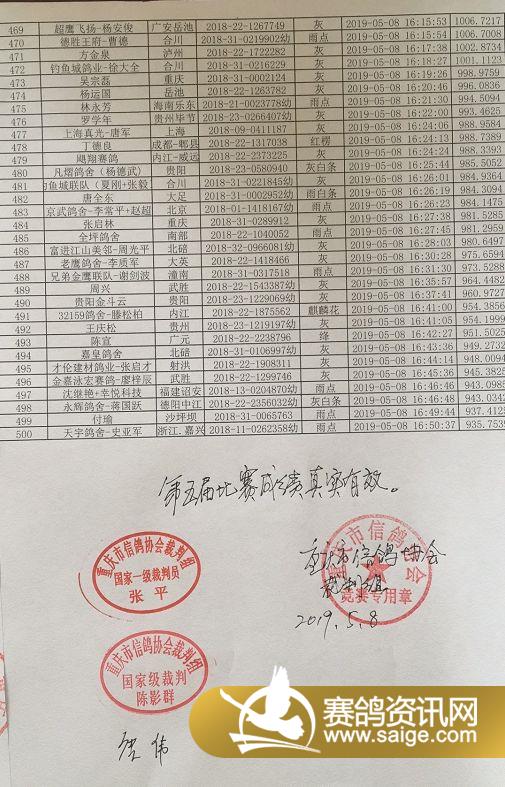 469 超鹰飞扬-杨安俊 广安岳池 2018-22-1267749 灰 2019-05-08 16:15:53 1006.7217
470 德胜王府-曹德 合川 2018-31-0219902幼 雨点 2019-05-08 16:15:54 1006.7008
471 方金泉 泸州 2018-22-1722282 灰 2019-05-08 16:17:38 1002.8734
472 钓鱼城鸽业-徐大全 合川 2018-31-0216229 灰 2019-05-08 16:18:27 1001.1123
473 吴宗磊 重庆 2018-31-0002124 灰 2019-05-08 16:19:26 998.9759
474 杨运国 岳池 2018-22-1263782 灰 2019-05-08 16:20:46 996.0836
475 林永芳 海南乐东 2018-21-0023778幼 雨点 2019-05-08 16:21:30 994.5094
476 罗学年 贵州毕节 2018-23-0266407幼 灰 2019-05-08 16:22:00 993.4625
477 上海真光-唐军 上海 2018-09-0411187 灰 2019-05-08 16:24:14 988.7908
478 丁德良 成都-郫县 2018-22-1317038 红楞 2019-05-08 16:24:13 988.7389
479 飓翔赛鸽 内江-威远 2018-22-2373225 灰 2019-05-08 16:24:24 988.3399
480 凡熠鸽舍（杨德武） 贵阳 2018-23-0580940 灰白条 2019-05-08 16:25:44 985.5052
481 钓鱼城联队（夏刚+张毅 合川 2018-31-0221845幼 灰 2019-05-08 16:26:06 984.9351
482 唐全东 大足 2018-31-0002952幼 雨白条 2019-05-08 16:26:19 984.2356
483 京武鸽舍-李常平+赵超 北京 2018-01-1418167幼 雨点 2019-05-08 16:26:23 984.1475
484 张启林 重庆 2018-31-0289912 灰 2019-05-08 16:27:38 981.5285
485 全坪鸽舍 南部 2018-22-1042050 雨点 2019-05-08 16:27:45 981.2951
486 富进江山美邻-周光平 北碚 2018-32-0966081幼 灰 2019-05-08 16:28:03 980.6497
487 老鹰鸽舍-李质军 大英 2018-22-1418466 灰 2019-05-08 16:30:28 975.6594
488 兄弟金鹰联队-谢剑波 潼南 2018-31-0317518 雨点 2019-05-08 16:31:30 973.5288
489 周兴 武胜 2018-22-1543387幼 灰 2019-05-08 16:35:57 964.4482
490 贵阳金斗云 贵阳 2018-23-1229069幼 灰 2019-05-08 16:37:41 960.9727
491 32159鸽舍-滕松柏 内江 2018-22-1875562 麒麟花 2019-05-08 16:41:00 954.3856
492 王庆松 贵州 2018-23-1219197幼 灰 2019-05-08 16:41:05 954.1999
493 陈宣 广元 2018-22-2238796 绛 2019-05-08 16:42:27 951.5025
494 嘉皇鸽舍 北碚 2018-31-0106997幼 灰 2019-05-08 16:43:36 949.2732
495 才伦建材鸽业-张启才 射洪 2018-22-1908311 灰 2019-05-08 16:44:14 948.0094
496 金嘉泳宏赛鸽-廖梓辰 武胜 2018-22-1299746 灰 2019-05-08 16:45:36 945.3825
497 沈继艳+幸悦科技 福建诏安 2018-13-0204870幼 雨点 2019-05-08 16:46:46 943.0985
498 永辉鸽舍-蒋国跃 德阳中江 2018-22-2356032幼 灰白条 2019-05-08 16:46:48 943.0342
499 付瑜 沙坪坝 2018-31-0065763 雨点 2019-05-08 16:49:44 937.4125
500 天宇鸽舍-史亚军 浙江.嘉兴 2018-11-0262358幼 雨点 2019-05-08 16:50:37 935.7535
第五届比赛成绩真实有效。
重庆市信鸽协会裁判组
国家一级裁判员
张平
重庆市信鸽协会
竞赛专用章
重庆市信鸽协会
裁判组
2019.5.8
重庆市信鸽协会裁判组
国家级裁判
陈影群
赛鸽资讯网
www.saige.com